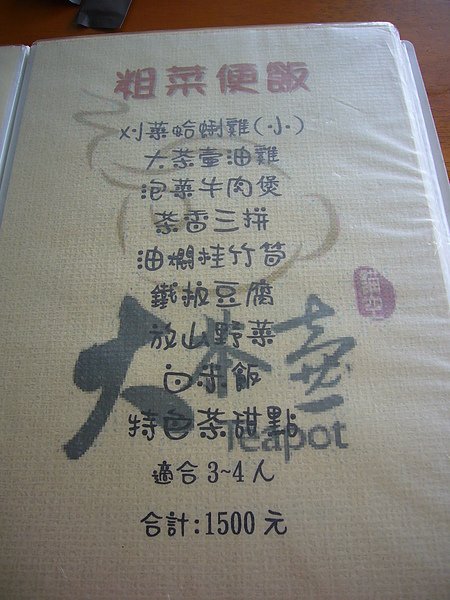 粗菜便飯
刈菜蛤蜊雞(小)
大茶壼油雞
泡菜牛肉煲
茶香三拼
油燜桂竹筍
鐵板豆腐
放山野菜
白米飯
特色茶甜點
適合3~4人
合計:1500元
大茶壺
Teapot
貓空